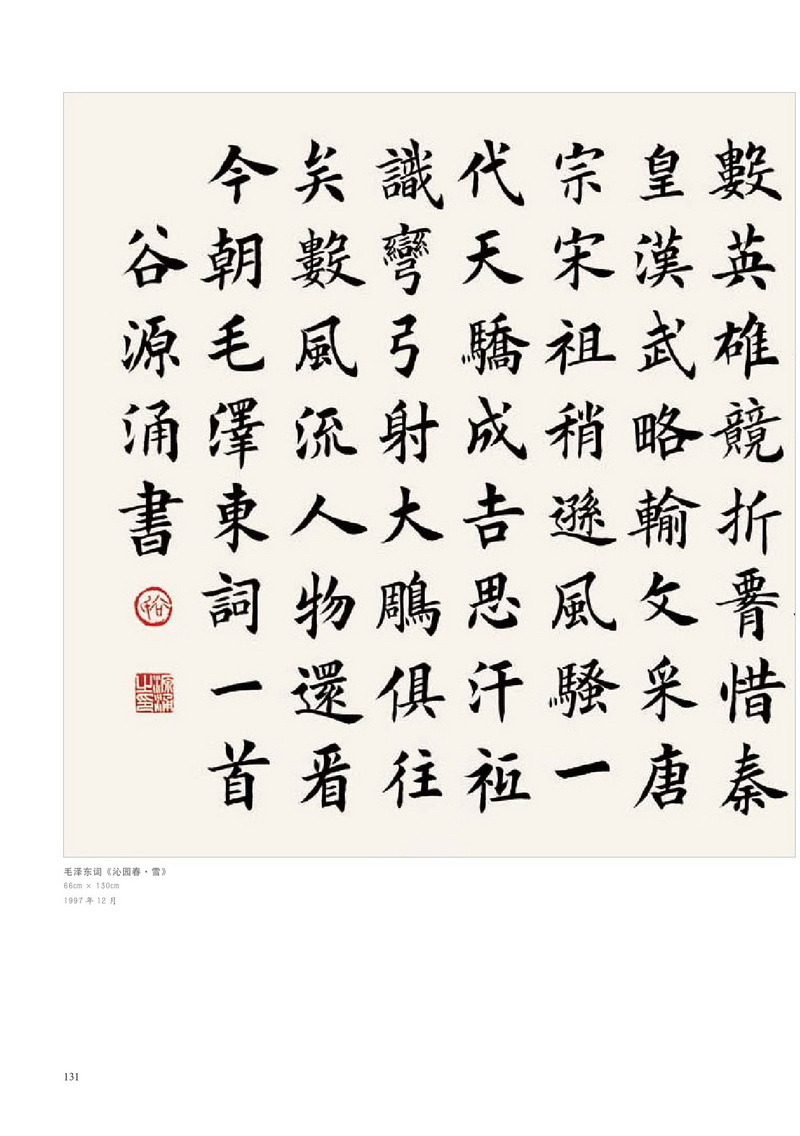 數英雄競折腰惜秦
皇漢武略輸文采唐
宗宋祖稍遜風騷一
代天驕成吉思汗衹
識彎弓射大鵰俱往
矣數風流人物還看
今朝毛澤東詞一首
谷源涌書
谷
源涌之印
毛泽东词《沁园春·雪》
66cm × 130cm
1997 年 12 月
131